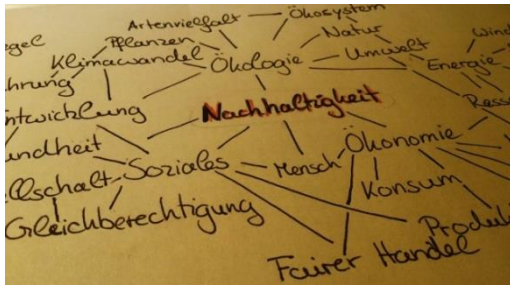 Artenvielfalt Ökosystem
egel Pflanzen Natur Wind
Klimawandel Ökologie Umwelt
hrung Energie
ntwicklung Nachhaltigkeit Ress
undheit Ökonomie
llschaft Soziales Mensch
Konsum
Gleichberechtigung Produkt
Fairer Handel